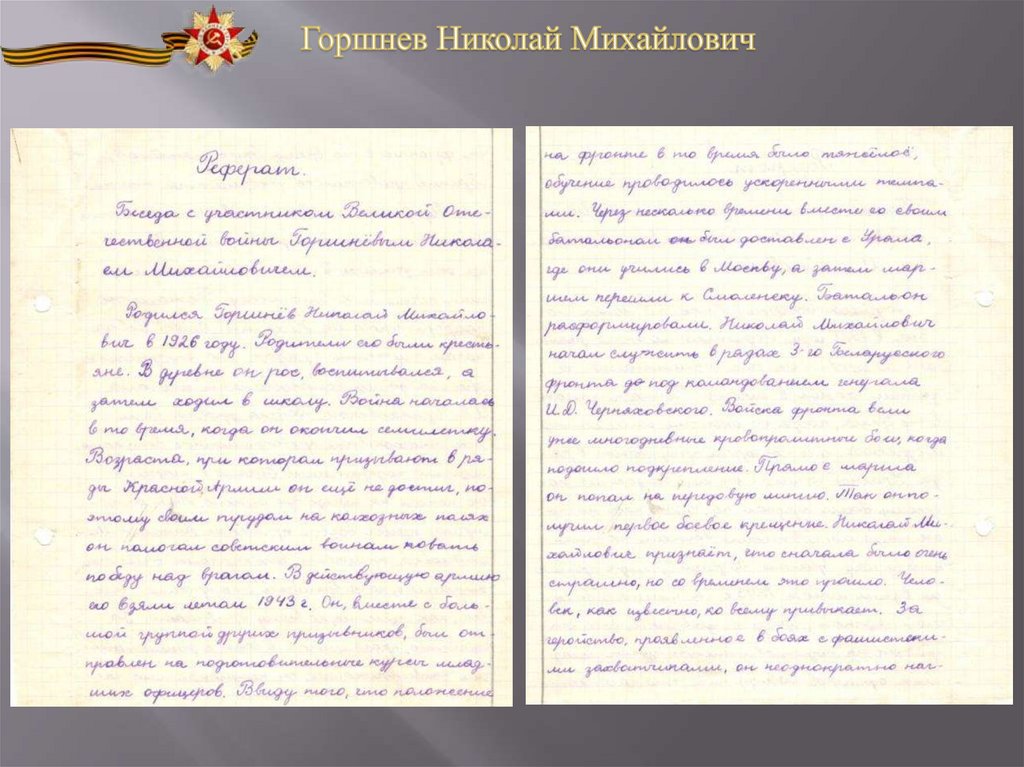 Горшнев Николай Михайлович
Реферат.
Беседа с участником Великой Оте-
чественной войны Горшнёвым Никола-
ем Михайловичем.
Родился Горшнёв Николай Михайло-
вич в 1926 году. Родители его были кресть-
яне. В деревне он рос, воспитывался, а
затем ходил в школу. Война началась
в то время, когда он окончил семилетку.
Возраста, при котором призывают в ря-
ды Красной Армии он ещё не достиг, по-
этому своим трудом на колхозных полях
он помогал советским воинам ковать
победу над врагом. В действующую армию
его взяли летом 1943 г. Он, вместе с боль-
шой группой других призывников, был от-
правлен на подготовительные курсы млад-
ших офицеров. Ввиду того, что положение
на фронте в то время было тяжёлое,
обучение проводилось ускоренными темпа-
ми. Через несколько времени вместе со своим
батальоном он был доставлен с Урала,
где они учились в Москву, а затем мар-
шем перешли к Смоленску. Батальон
расформировали. Николай Михайлович
начал служить в рядах 3-го Белорусского
фронта до под командованием генерала
И.Д. Черняховского. Войска фронта вели
уже многодневные кровопролитные бои, когда
подошло подкрепление. Прямо с марша
он попал на передовую линию. Так он по-
лучил первое боевое крещение. Николай Ми-
хайлович признаёт, что сначала было очень
страшно, но со временем это прошло. Чело-
век, как известно, ко всему привыкает. За
геройство, проявленное в боях с фашистски-
ми захватчиками, он неоднократно наг-